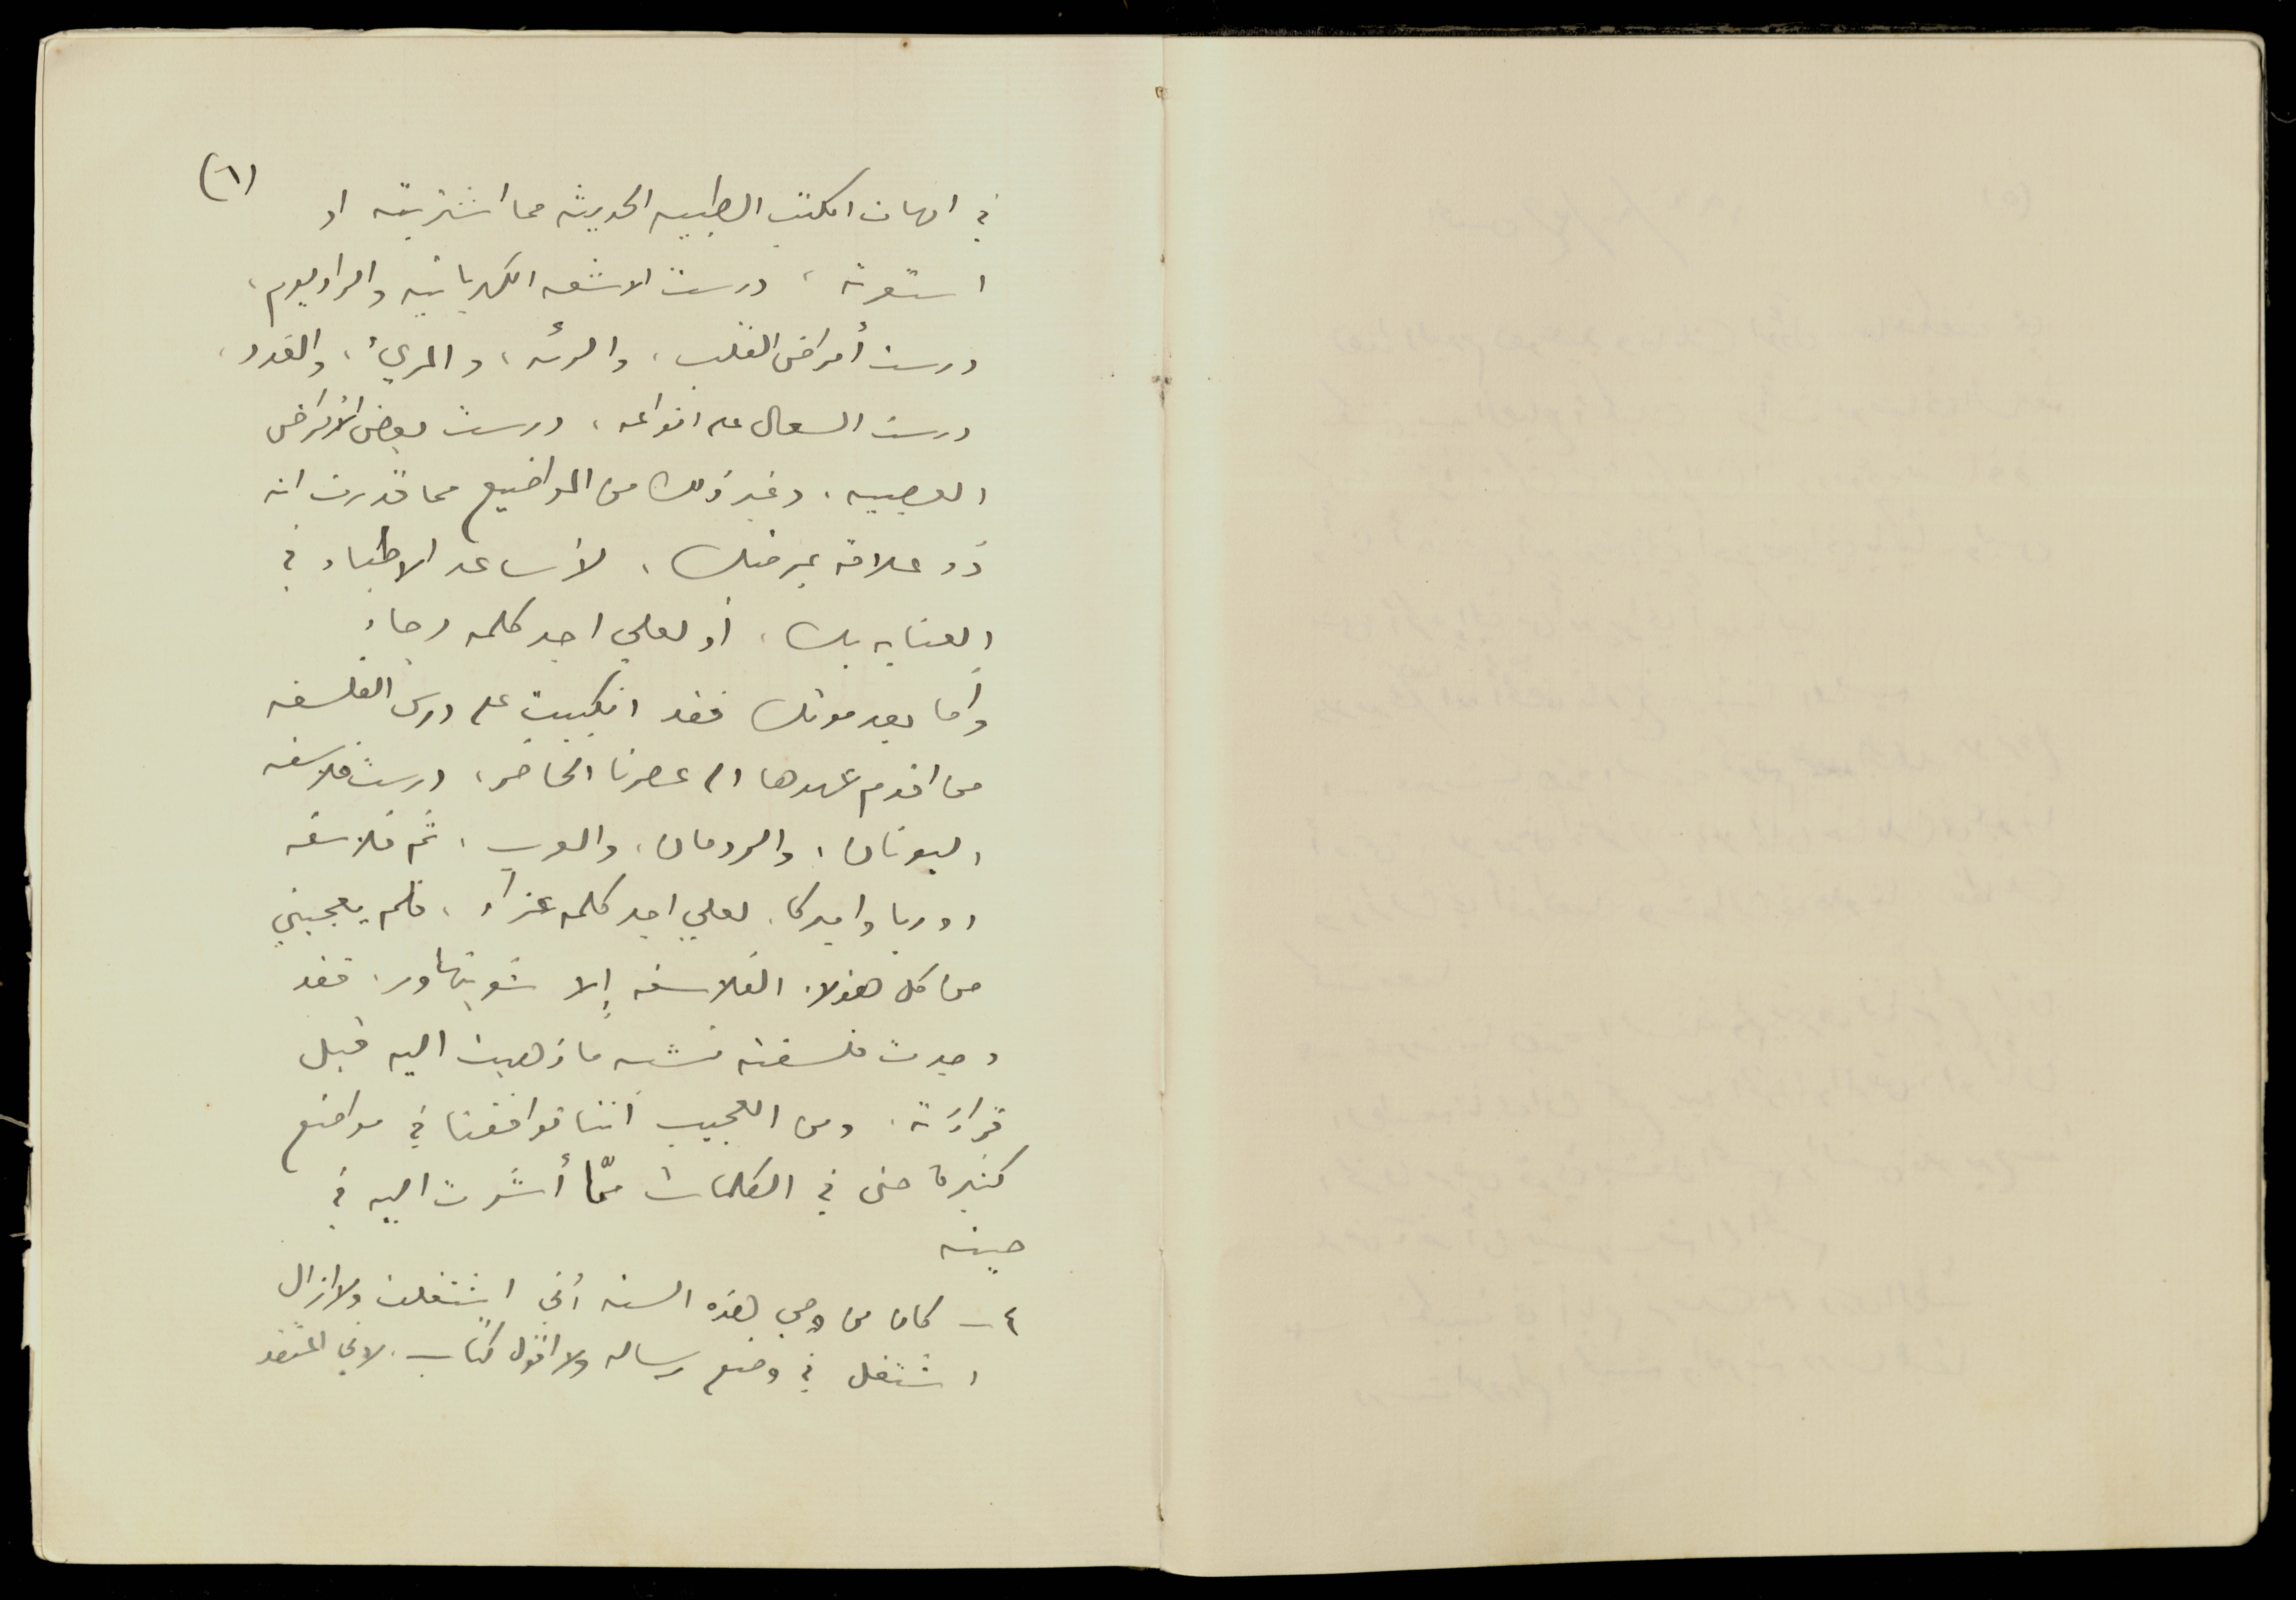 (٦)
في امهات الكتب الطبيه الحديثه مما اشتريته او
استعرته، درست الاشعه الكهربائيه والراديوم،
درست أمراض القلب، والرئه، والمريء، والغدد،
درست السعال على انواعه، درست بعض الأمراض
العصبيه، وغير ذلك من المواضيع مما قدرت انه
ذو علاقة بمرضك، لأساعد الاطباء في
العنايه بك، أو لعلي اجد كلمه رجاء
وأما بعد موتك فقد انكببت على درس الفلسفه
من اقدم عهدها الى عصرنا الحاضر، درست فلاسفه
اليونان، والرومان، والعرب، ثم فلاسفه
اوربا واميركا، لعلي اجد كلمه عزاء، فلم يعجبني
من كل هؤلاء الفلاسفه إلا شوبنهاور، فقد
وجدت فلسفته تشبه ما ذهبت اليه قبل
قراءته. ومن العجيب أننا توافقنا في مواضع
كثيرة حتى في الكلمات ممّا أشرت اليه في
حينه
٤ - كان من وحي هذه السنه أني اشتغلت ولا ازال
اشتغل في وضع رساله ولا اقول كتاب. لاني اعتقد